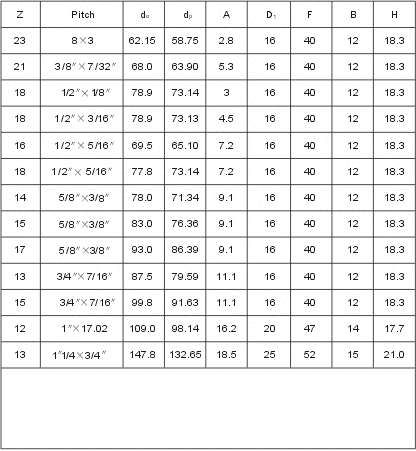 Z Pitch de dp A D1 F B H
23 8×3 62.15 58.75 2.8 16 40 12 18.3
21 3/8"×7/32" 68.0 63.90 5.3 16 40 12 18.3
18 1/2"×1/8" 78.9 73.14 3 16 40 12 18.3
18 1/2"×3/16" 78.9 73.13 4.5 16 40 12 18.3
16 1/2"×5/16" 69.5 65.10 7.2 16 40 12 18.3
18 1/2"×5/16" 77.8 73.14 7.2 16 40 12 18.3
14 5/8"×3/8" 78.0 71.34 9.1 16 40 12 18.3
15 5/8"×3/8" 83.0 76.36 9.1 16 40 12 18.3
17 5/8"×3/8" 93.0 86.39 9.1 16 40 12 18.3
13 3/4"×7/16" 87.5 79.59 11.1 16 40 12 18.3
15 3/4"×7/16" 99.8 91.63 11.1 16 40 12 18.3
12 1"×17.02 109.0 98.14 16.2 20 47 14 17.7
13 1"1/4×3/4" 147.8 132.65 18.5 25 52 15 21.0